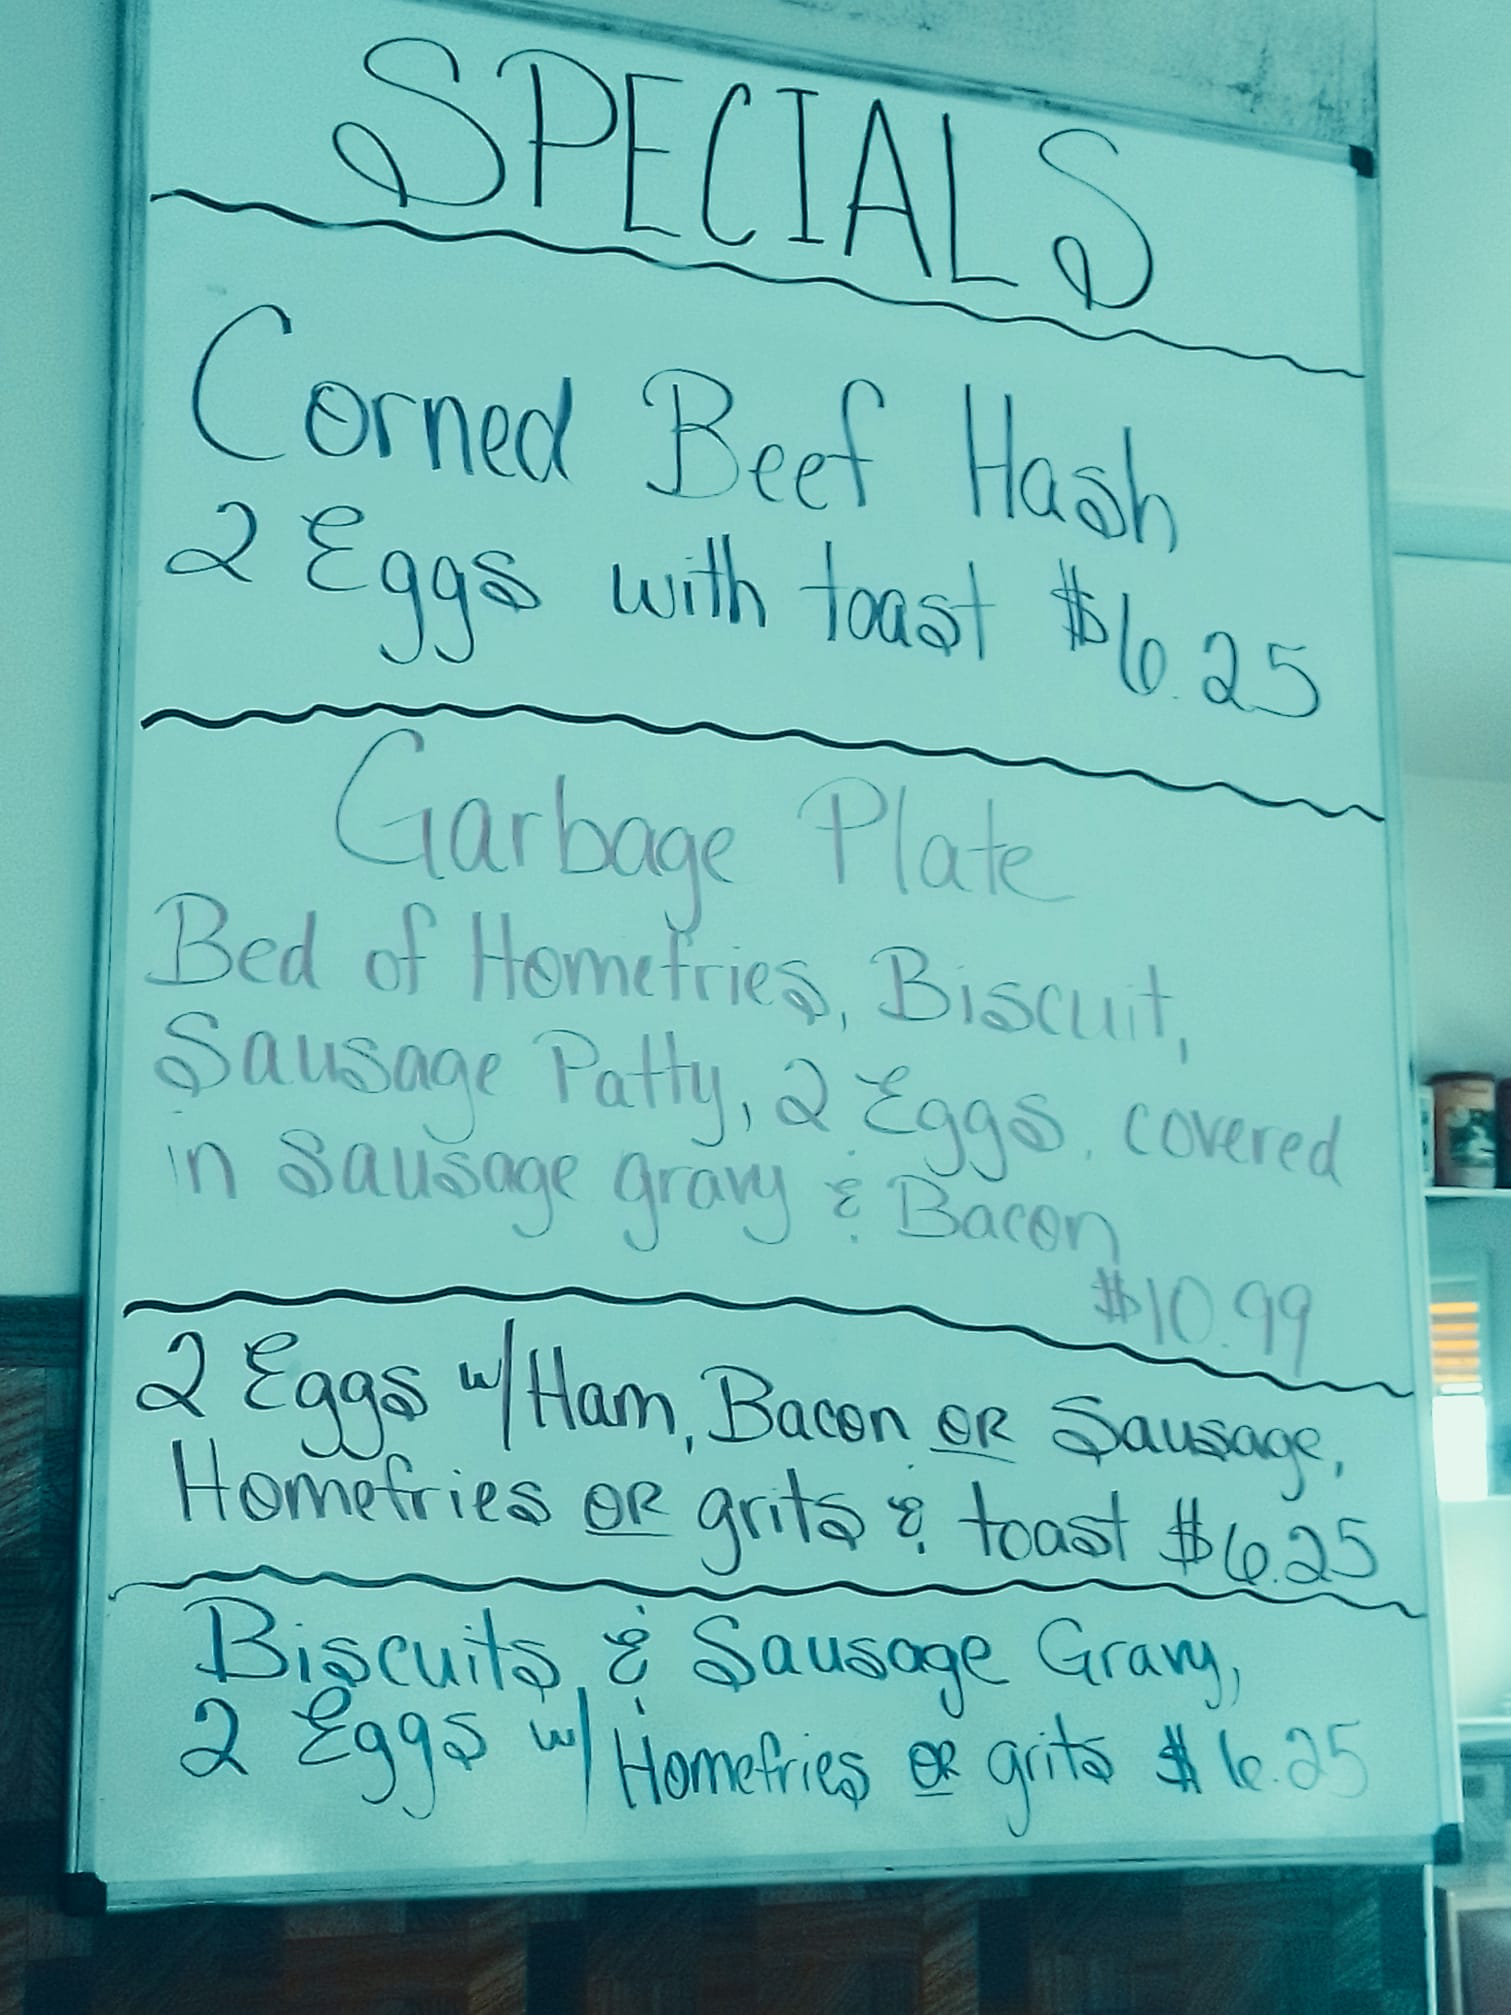 SPECIALS
Corned Beef Hash
2 Eggs with toast $6.25
Garbage Plate
Bed of Homefries, Biscuit,
Sausage Patty, 2 Eggs, covered
in sausage gravy & Bacon
$10.99
2 Eggs w/Ham, Bacon OR Sausage,
Homefries OR grits & toast $6.25
Biscuits & Sausage Gravy,
2 Eggs w/ Homefries OR grits $6.25